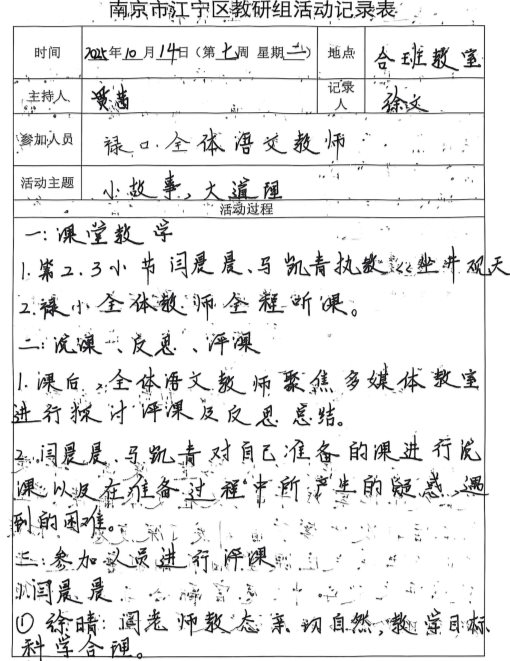 南京市江宁区教研组活动记录表
时间 2025年10月14日(第七周 星期二) 地点 合班教室
主持人 黄茜 记录人 徐文
参加人员 禄口全体语文教师
活动主题 小故事,大道理
活动过程
一:课堂教学
1.第2.3小节闫晨晨、马凯青执教《坐井观天
2.禄小全体教师全程听课。
二:说课、反思、评课
1.课后,全体语文教师聚焦多媒体教室
进行探讨评课及反思总结。
2.闫晨晨、马凯青对自己准备的课进行说
课以及在准备过程中所产生的疑惑,遇
到的困难。
三:参加人员进行评课
闫晨晨
① 徐晴:闫老师教态亲切自然,教学目标
科学合理。